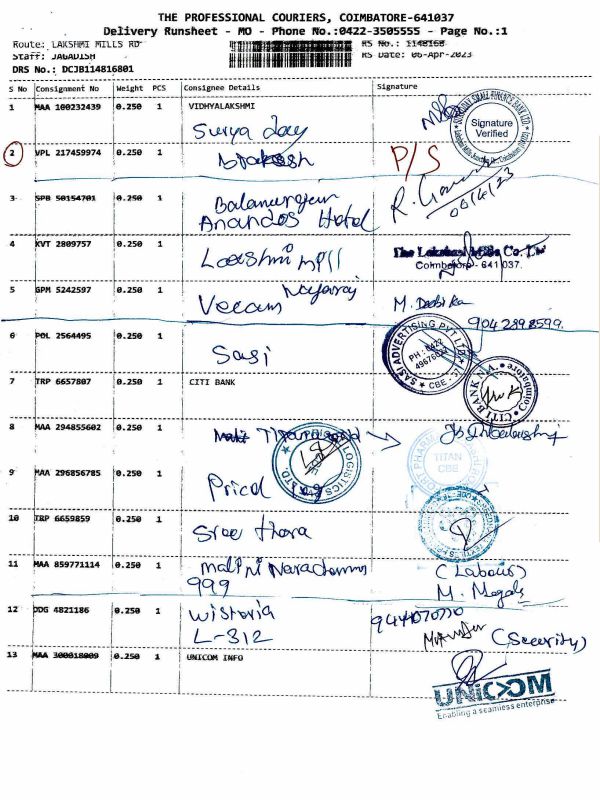 THE PROFESSIONAL COURIERS, COIMBATORE-641037
Delivery Runsheet - MO - Phone No.:0422-3505555 - Page No.:1
Route: LAKSHMI MILLS RD RS No.: 1148168
Staff: JAGADISH RS Date: 06-Apr-2023
DRS No.: DCJB114816801
S No Consignment No Weight PCS Consignee Details Signature
1 MAA 100232439 0.250 1 VIDHYALAKSHMI
Surya day
Signature Verified
2 VPL 217459974 0.250 1 P/S
3 SPB 50154701 0.250 1 Balamurugan
Anandas Hotel
06/4/23
4 KVT 2809757 0.250 1 Lakshmi mill
The Lakshmi Mills Co. Ltd
Coimbatore - 641 037.
5 GPM 5242597 0.250 1 Veeam Nagarraj
M. Debika
9042898599.
6 POL 2564495 0.250 1 Sasi
SASI ADVERTISING PVT LTD
PH : 0422
CBE
7 TRP 6657807 0.250 1 CITI BANK
CITI BANK N.A. Coimbatore
8 MAA 294855602 0.250 1
LOGISTICS
TITAN
CBE
9 MAA 296856785 0.250 1 Pricol
10 TRP 6659859 0.250 1 Sree thara
11 MAA 859771114 0.250 1 malini
999
(Labour)
M.
12 DDG 4821186 0.250 1 Wistoria
L-312
(Security)
13 MAA 300018009 0.250 1 UNICOM INFO
UNICOM
Enabling a seamless enterprise